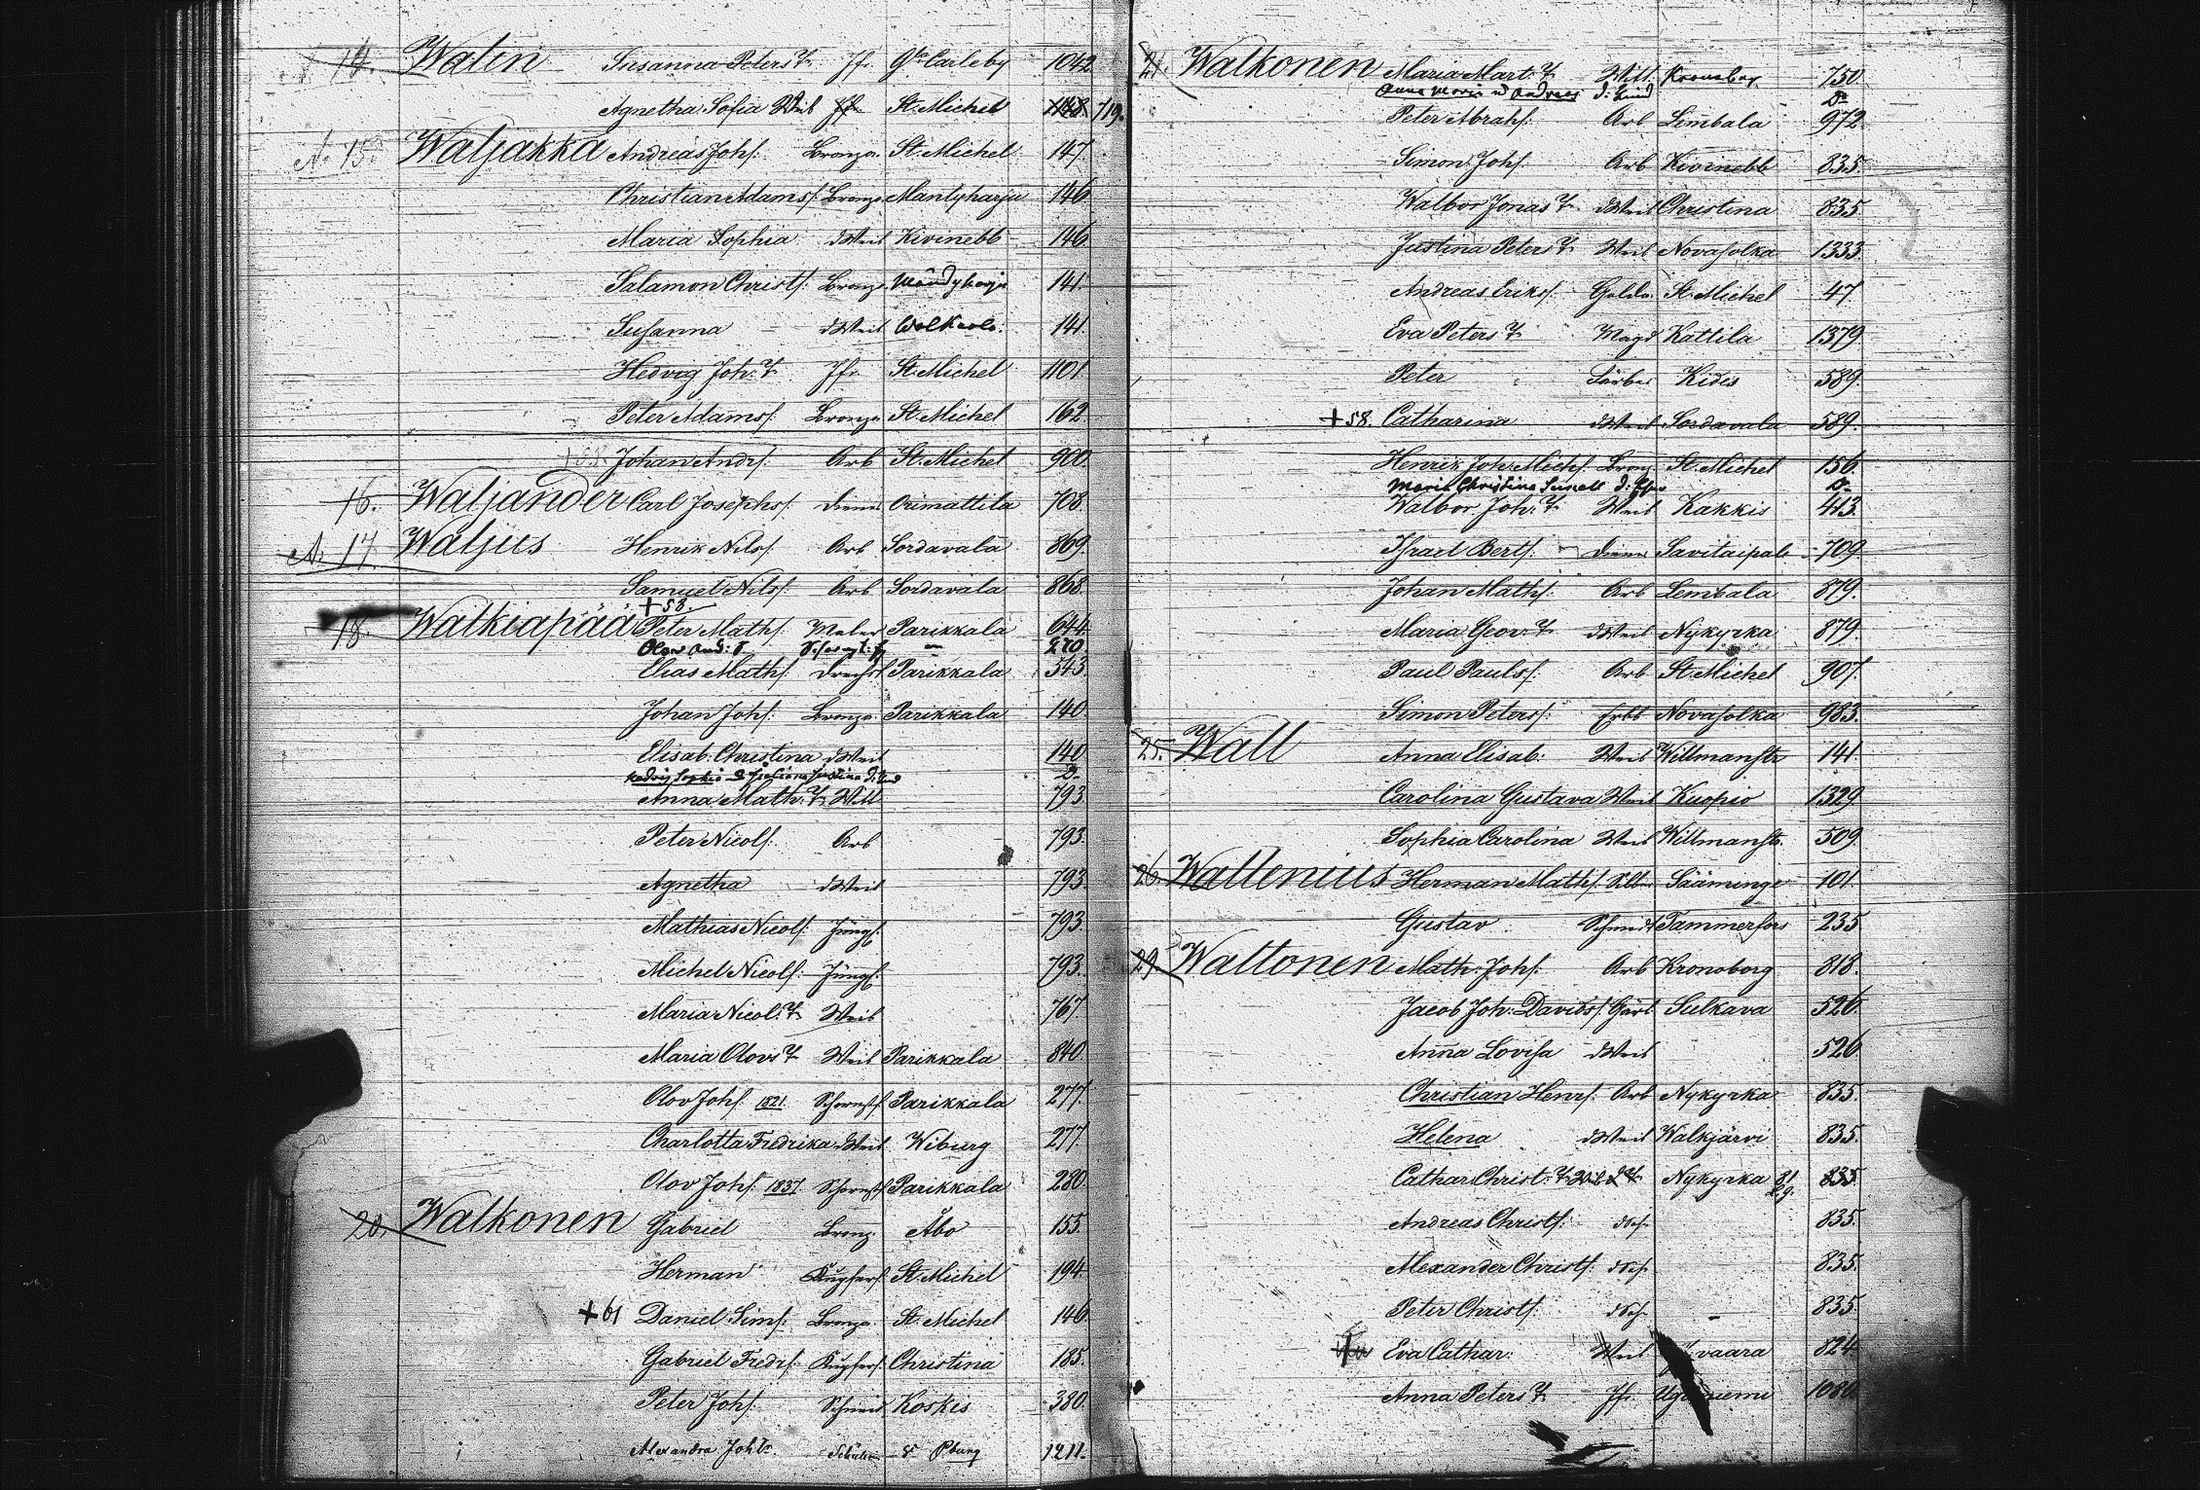 N. 14. Walin Susanna Peters T. Jfr. Gla Carleby 1042
Agnetha Sofia Weib St. Michel 1148. 719.
N. 15. Waljakka Andreas Johs: Bronza. St. Michel 147.
Christian Adams: Bronza Mäntyharju 146
Maria Sophia dWeib Kivinebb 146
Salamon Christs: Bronza. Mändyharju 141.
Susanna dWeib Walkeala. 141.
Hedvig Joh: T. Jfr. St. Michel 1101.
Peter Adams: Bronza St. Michel 162.
Johan Andrs: Arb St. Michel 900.
16. Waljander Carl Josephs: diener Orimattila 708.
N. 17. Waljus Henrik Nils: Arb Sordavala 869.
Samuel Nils: Arb Sordavala 868.
+ 58.
18. Walkiapää Peter Maths: Maler Parikkala 644
Olov And: S. 270
Elias Maths: Drechsl Parikkala 543.
Johan Johs: Bronza. Parikkala 140.
Elisab: Christina dWeib 140
Hedvig Sophia & Justina d: Kind D.
Anna Math: T. Witt 793.
Peter Nicols: Arb 793.
Agnetha dWeib 793.
Mathias Nicols: Jüngl: 793.
Michel Nicols: Jüngl: 793.
Maria Nicol: T. Weib 767.
Maria Olovs T. Weib Parikkala 840.
Olov Johs: 1821. Schornstf Parikkala 277.
Charlotta Fredrika dWeib Wiburg 277
Olov Johs: 1837. Schornstf Parikkala 280.
20. Walkonen Gabriel Bronz. Åbo 155.
Herman Kupfers: St. Michel 194.
+ 61 Daniel Sims: Bronza. St. Michel 146.
Gabriel Fredrs: Kupfers: Christina 185.
Peter Johs: Schneid. Koskis 380.
Alexandra Joh: Schülerin St Pburg 1211.
21. Walkonen Maria Mart: T. Witt. Kronoborg. 750.
Anna Maria u Andreas d: Kind D:
Peter Abrahs: Arb Lembala 972.
Simon Johs: Arb Kivinebb 835.
Walbor Jonas T. dWeib Christina 835
Justina Peters T. Weib Novasolka 1333.
Andreas Eriks: Golda. St. Michel 47.
Eva Peters T. Magd Kattila 1379.
Peter Färber Kides 589.
+ 58. Catharina dWeib Sordavala 589.
Henrik Joh. Michs: Bronz. St. Michel 156.
Maria Christina d. D.
Walbor Joh: T. Weib Kakkis 413.
Israel Berts: diener Savitaipale 709.
Johan Maths: Arb Lembala 879.
Maria Geor: T. dWeib Nykyrka 879.
Paul Pauls: Arb St. Michel 907.
Simon Peters: Novasolka 983.
25. Wall Anna Elisab: Weib Willmanstr 141.
Carolina Gustava Weib Kuopio 1329
Sophia Carolina Weib Willmanstr. 509.
26. Wallenius Herman Maths: Silber Sääminge 101.
Gustav Schmidt Tammerfors 235
29. Waltonen Math: Johs: Arb Kronoborg 818.
Jacob Joh: Davids: Gürt Sulkava 526.
Anna Lovisa dWeib 526.
Christian Henrs: Arb Nykyrka 835.
Helena dWeib Walkjärvi 835.
Cathar: Christ: T. Nykyrka 835.
Andreas Christs: dSoh 835.
Alexander Christs: dSoh 835.
Peter Christs: dSoh 835.
Eva Cathar: Weib vaara 824.
Anna Peters T. Jfr. niemi 1086